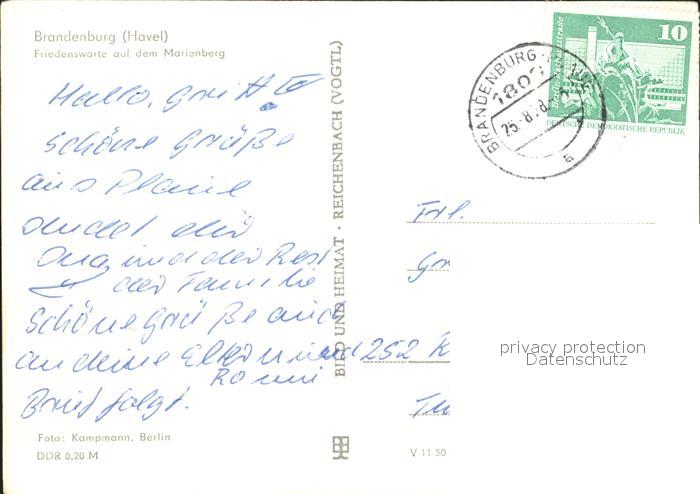 Brandenburg (Havel)
Friedenswarte auf dem Marienberg
Hallo, Gritt!
schöne Grüße
aus Plaue
sendet dir
Oma und der Rest
der Familie
Schöne Grüße auch
an deine Eltern und
Romni
Brief folgt.
Foto: Kampmann, Berlin
DDR 0,20 M
BILD UND HEIMAT · REICHENBACH (VOGTL)
V 11 50
BRANDENBURG
1802
25.8.8
10
DEUTSCHE DEMOKRATISCHE REPUBLIK
Frl.
Gr
252 K
privacy protection
Datenschutz